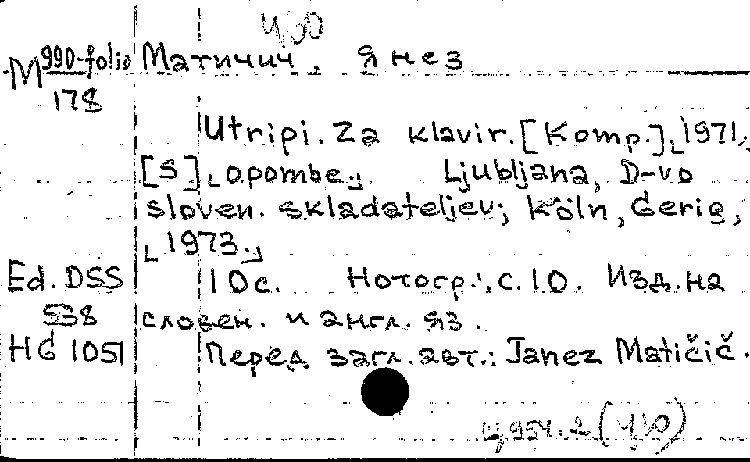 ЧЮ
M 990-folio Матичич, Янез
178
Utripi. Za klavir. [Komp.], 1971,
[S] opombe. Ljubljana, D-vo
sloven. skladateljev; Köln, Gerig,
1973.
Ed. DSS 10с. Нотогр.: с. 10. Изд. на
538 словен. и англ. яз.
HG 1051 Перед загл. авт.: Janez Matičič.
Ц954.2 (ЧЮ)